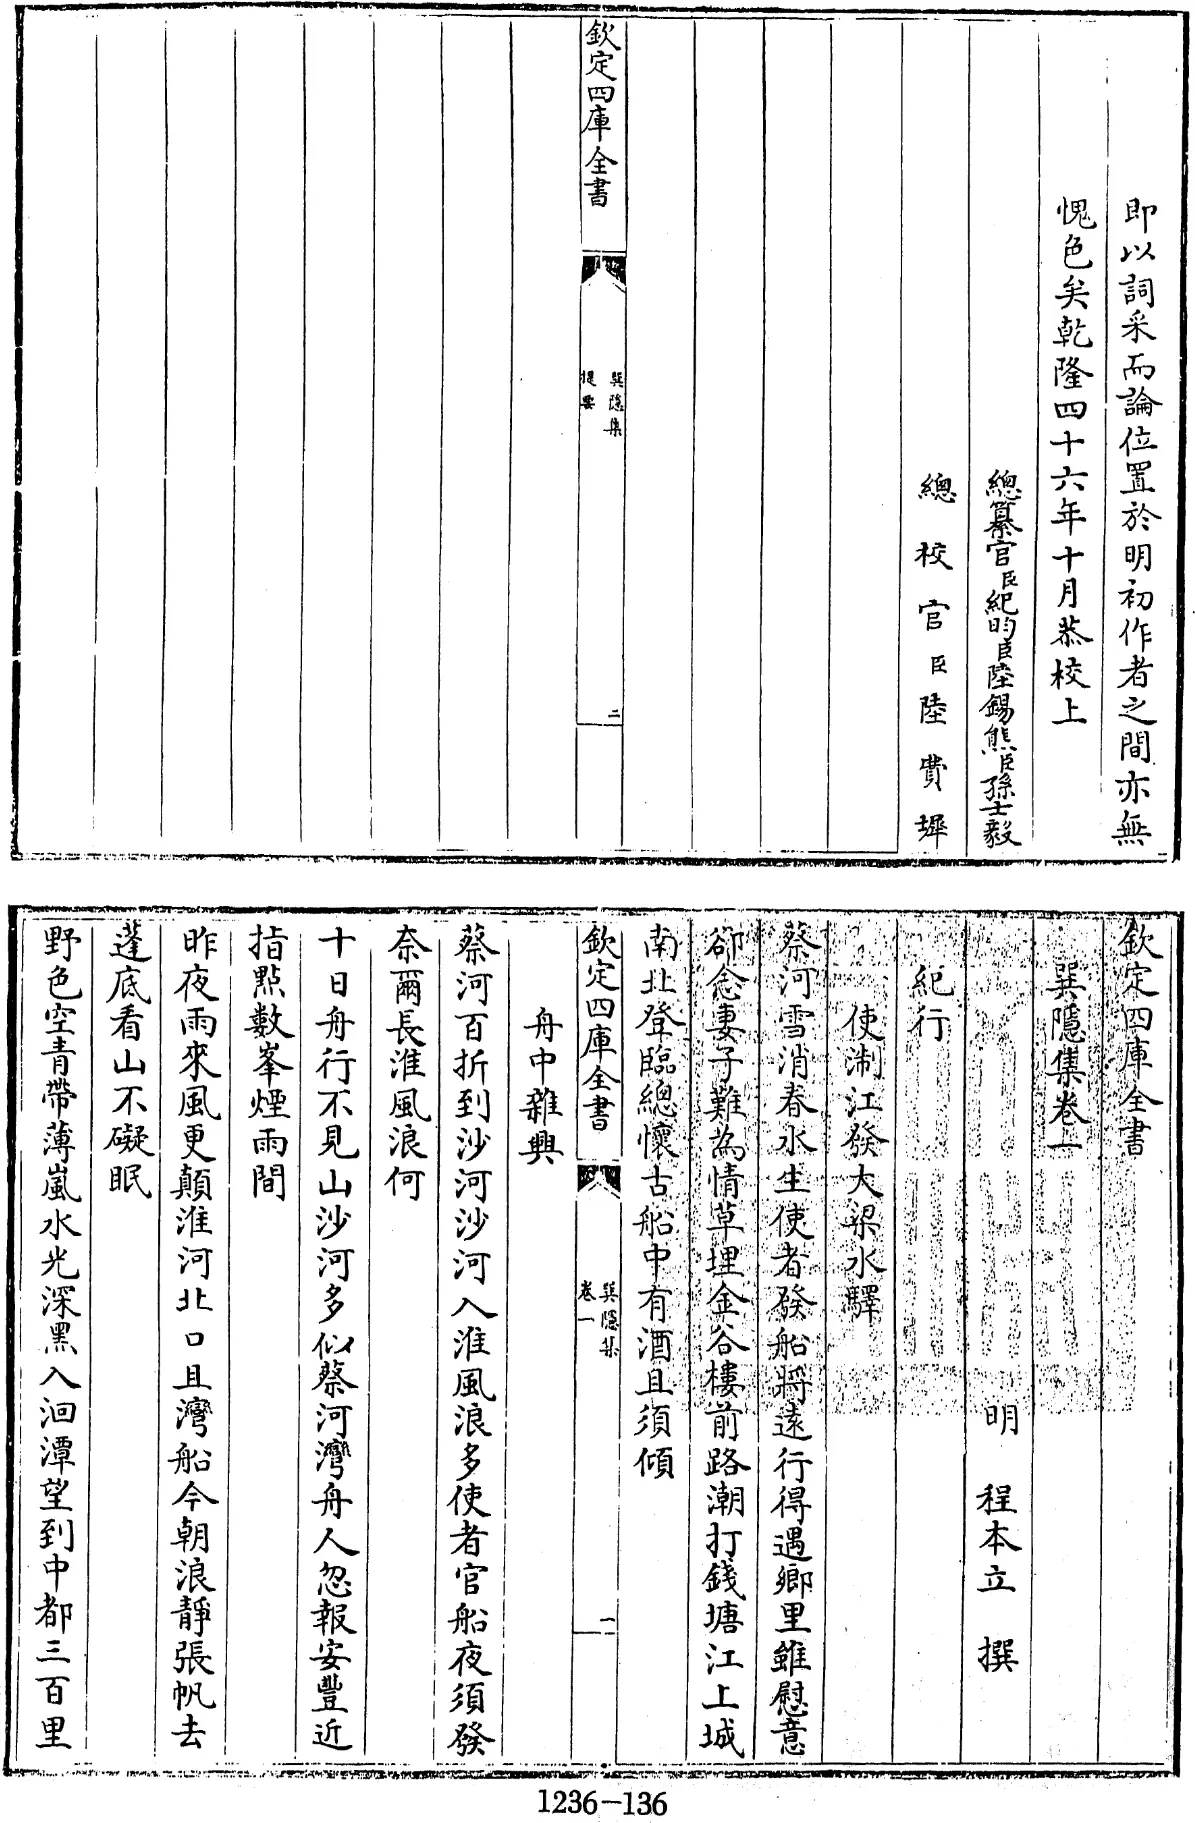 即以詞采而論位置於明初作者之間亦無
愧色矣乾隆四十六年十月恭校上
總纂官臣紀昀臣陸錫熊臣孫士毅
總校官臣陸費墀
欽定四庫全書
巽隱集
提要
二
欽定四庫全書
巽隱集卷一
明 程本立 撰
紀行
使淛江發大梁水驛
蔡河雪消春水生使者發船將遠行得遇鄉里雖慰意
卻念妻子難為情草埋金谷樓前路潮打錢塘江上城
南北登臨總懷古船中有酒且須傾
欽定四庫全書
巽隱集
卷一
一
舟中雜興
蔡河百折到沙河沙河入淮風浪多使者官船夜須發
奈爾長淮風浪何
十日舟行不見山沙河多似蔡河灣舟人忽報安豐近
指點數峯煙雨間
昨夜雨來風更顛淮河北口且灣船今朝浪靜張帆去
蓬底看山不礙眠
野色空青帶薄嵐水光深黑入洄潭望到中都三百里
1236-136